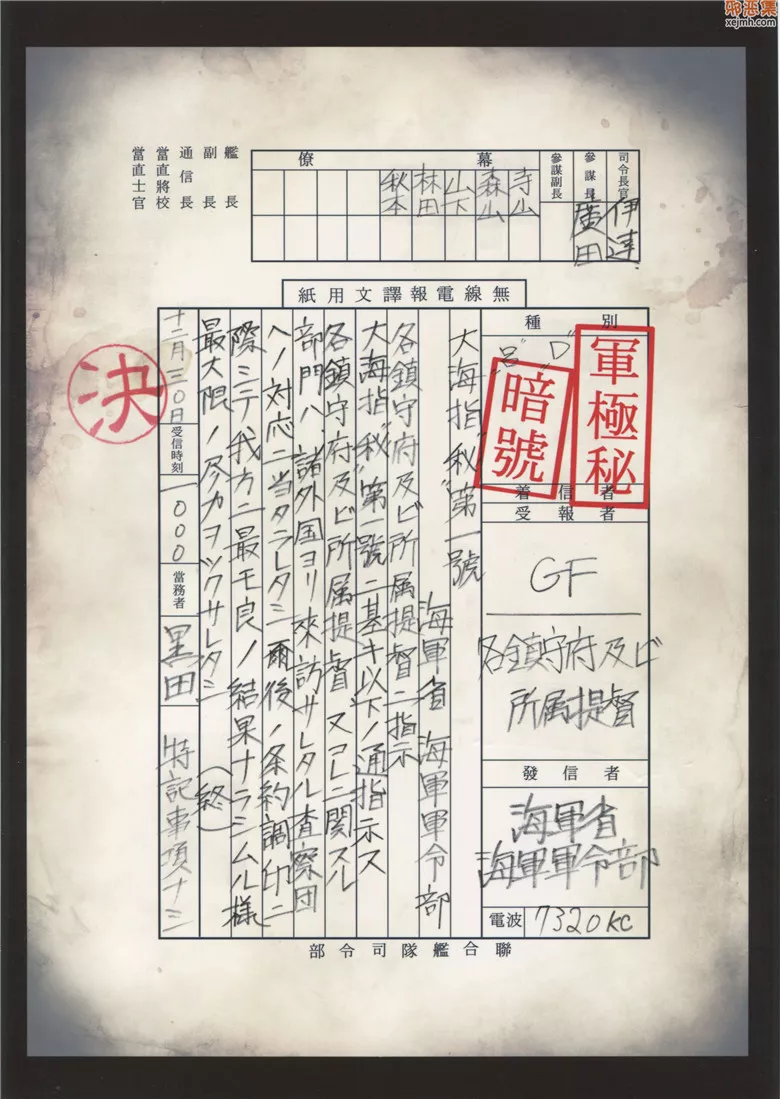 邪恶集
xejmh.com
艦長
副長
通信長
當直將校
當直士官
司令長官
伊達
參謀長
廣田
參謀副長
幕僚
寺山
森山
山下
林田
秋本
無線電報譯文用紙
種別
"D"
"呂"
軍極秘
暗號
着信者
受報者
GF
各鎮守府及ビ
所属提督
發信者
海軍省
海軍軍令部
電波
7320KC
大海指"秘"第一號
海軍省 海軍軍令部
各鎮守府及ビ所属提督ニ指示
大海指"秘"第一號ニ基キ以下ノ通指示ス
各鎮守府及ビ所属提督、又コレニ関スル
部門ハ、諸外国ヨリ来訪サレタル査察団
ヘノ対応ニ当タラレタシ 爾後ノ条約調印ニ
際シテ、我方ニ最モ良ノ結果ナラシムル様
最大限ノ尽力ヲツクサレタシ (終)
十二月三〇日
受信時刻
一〇〇〇
當務者
黒田
特記事項ナシ
決
聯合艦隊司令部